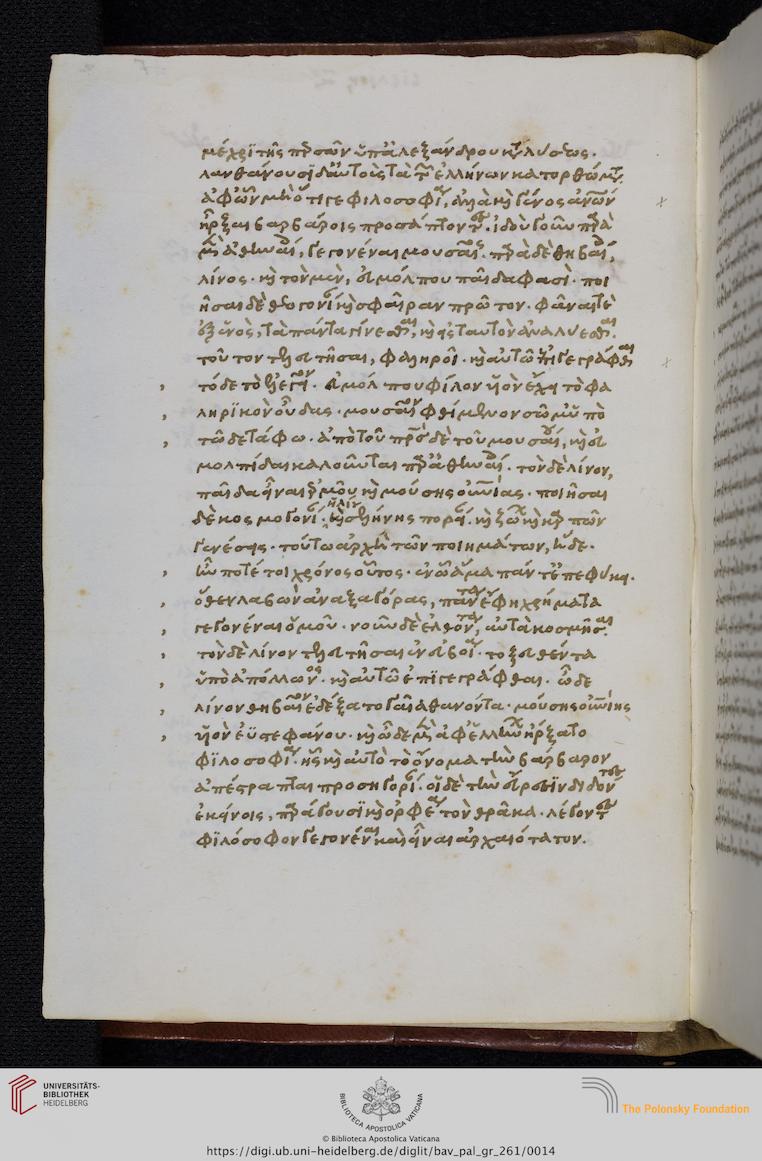 μέχρι τῆς περσῶν ὑπ' ἀλεξάνδρου καταλύσεως.
λανθάνουσι δ' αὐτοὺς τὰ τῶν ἑλλήνων κατορθώματα,
ἀφ' ὧν μὴ ὅτι γε φιλοσοφία, ἀλλὰ καὶ γένος ἀνθρώπων
ἦρξαι βαρβάροις προσάπτοντες. ἰδοὺ γοῦν παρὰ
μὲν ἀθηναίοις, γεγονέναι μουσαῖος. παρὰ δὲ θηβαίοις,
λίνος. καὶ τὸν μὲν, εὐμόλπου παῖδα φασὶ. ποι
ῆσαι δὲ θεογονίαν καὶ σφαῖραν πρῶτον. φάναι τὲ
ἐξ ἑνὸς, τὰ πάντα γίνεσθαι, καὶ εἰς ταυτὸν ἀναλύεσθαι.
τοῦτον τελευτῆσαι, φαληροῖ. καὶ αὐτῶ ἐπιγεγράφθαι
τόδε τὸ ἐλεγεῖον. εὐμόλπου φίλον υἱὸν ἔχει τὸ φα
ληρϊκὸν οὖδας. μουσαῖον φθίμενον σῶμ' ὑπὸ
τῶδε τάφω. ἀπὸ τοῦ πατρὸς δὲ τοῦ μουσαίου, καὶ εὐ
μολπίδαι καλοῦνται παρ' ἀθηναίοις. τὸν δὲ λίνον,
παῖδα εἶναι ἑρμοῦ καὶ μούσης οὐρανίας. ποιῆσαι
δὲ κοσμογονίαν. ἡλίου καὶ σελήνης πορείαν. καὶ ζώων καὶ καρπῶν
γενέσεις. τούτω ἀρχὴ τῶν ποιημάτων, ἥδε.
ἦν ποτέ τοι χρόνος οὗτος. ἐν ὧ ἅμα πάντ' ἐπεφύκει.
ὅθεν λαβὼν ἀναξαγόρας, πάντα ἔφη χρήματα
γεγονέναι ὁμοῦ. νοῦν δὲ ἐλθόντα, αὐτὰ κοσμῆσαι.
τὸν δὲ λίνον τελευτῆσαι ἐν εὐβοία. τοξευθέντα
ὑπὸ ἀπόλλωνος. καὶ αὐτῶ ἐπϊγεγράφθαι. ὧδε
λίνον θηβαῖον ἐδέξατο γαῖ' ἀθανόντα. μούσης οὐρανίης
υἱὸν ἐϋστεφάνου. καὶ ὧδε μὲν ἀφ' ἑλλήνων ἤρξατο
φϊλοσοφία. ἧς καὶ αὐτὸ τὸ ὄνομα τὴν βάρβαρον
ἀπέστραπται προσηγορίαν. οἱ δὲ τὴν εὕρεσϊν διδόντες
ἐκείνοις, παράγουσϊ καὶ ὀρφέα τὸν θρᾶκα. λέγοντες
φϊλόσοφον γεγονέναι καὶ εἶναι ἀρχαιότατον.
UNIVERSITÄTS-
BIBLIOTHEK
HEIDELBERG
BIBLIOTECA APOSTOLICA VATICANA
The Polonsky Foundation
© Biblioteca Apostolica Vaticana
https://digi.ub.uni-heidelberg.de/diglit/bav_pal_gr_261/0014